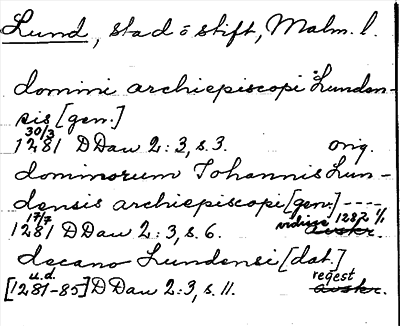 Lund, stad o stift, Malm. l.
domini archiepiscopi Lunden-
sis [gen.]
30/3
1281 DDan 2:3, s. 3. orig.
dominorum Johannis Lun-
densis archiepiscopi [gen.] ----
17/7 vidim 1282
1281 DDan 2:3, s. 6. avskr.
decano Lundensi [dat.]
u.d. regest
[1281-85] DDan 2:3, s. 11. avskr.